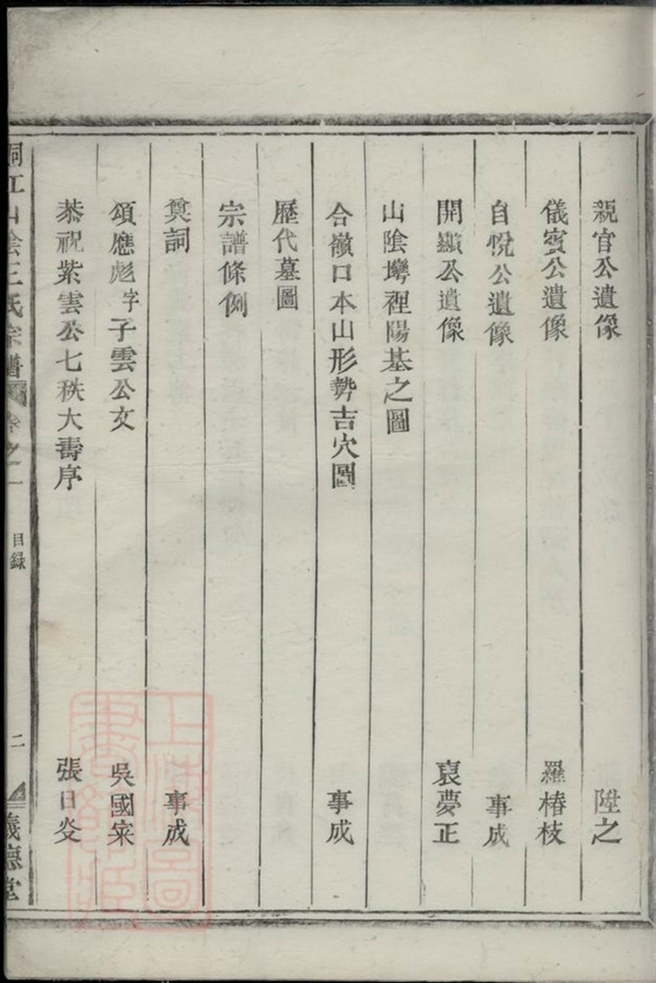 親官公遺像 陞之
儀賓公遺像 羅椿枝
自悅公遺像 事成
開顯公遺像 袁夢正
山陰塆裡陽基之圖
合嶺口本山形勢吉穴圖 事成
歷代墓圖
宗譜條例
奠詞 事成
頌應彪字子雲公文 吳國寀
恭祝紫雲公七秩大壽序 張日炎
山陰王氏宗譜 卷之二 目録 二 義德堂
上海圖書館藏